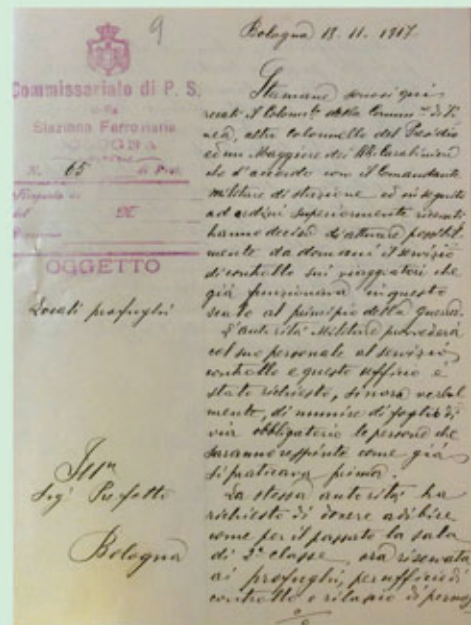 9
Bologna 13. 11. 1917.
Commissariato di P. S.
Stazione Ferroviaria
BOLOGNA
N. 65 di Prot.
Risposta a
del
N.
OGGETTO
Locali profughi
Ill.mo
Sig. Prefetto
Bologna
Stamane sonosi qui
recati il Colonn.lo della Comm.ne di
altro Colonnello del Presidio
ed un Maggiore dei RR. Carabinieri
che d'accordo con il Comandante
militare di stazione ed in seguito
ad ordini superiormente ricevuti
hanno deciso di attuare possibil
mente da domani il servizio
di controllo sui viaggiatori che
già funzionava in questo
scalo al principio della guerra.
L'autorità Militare provvederà
col suo personale al servizio
controllo e questo ufficio è
stato richiesto, sinora verbal
mente, di munire di foglio di
via obbligatorio le persone che
saranno respinte come già
si praticava prima.
La stessa autorità ha
richiesto di dovere adibire
come per il passato la sala
di 2ª classe, ora riservata
ai profughi, per ufficio di
controllo e rilascio di permes